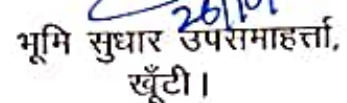 26/10/
भूमि सुधार उपसमाहर्त्ता,
खूँटी।